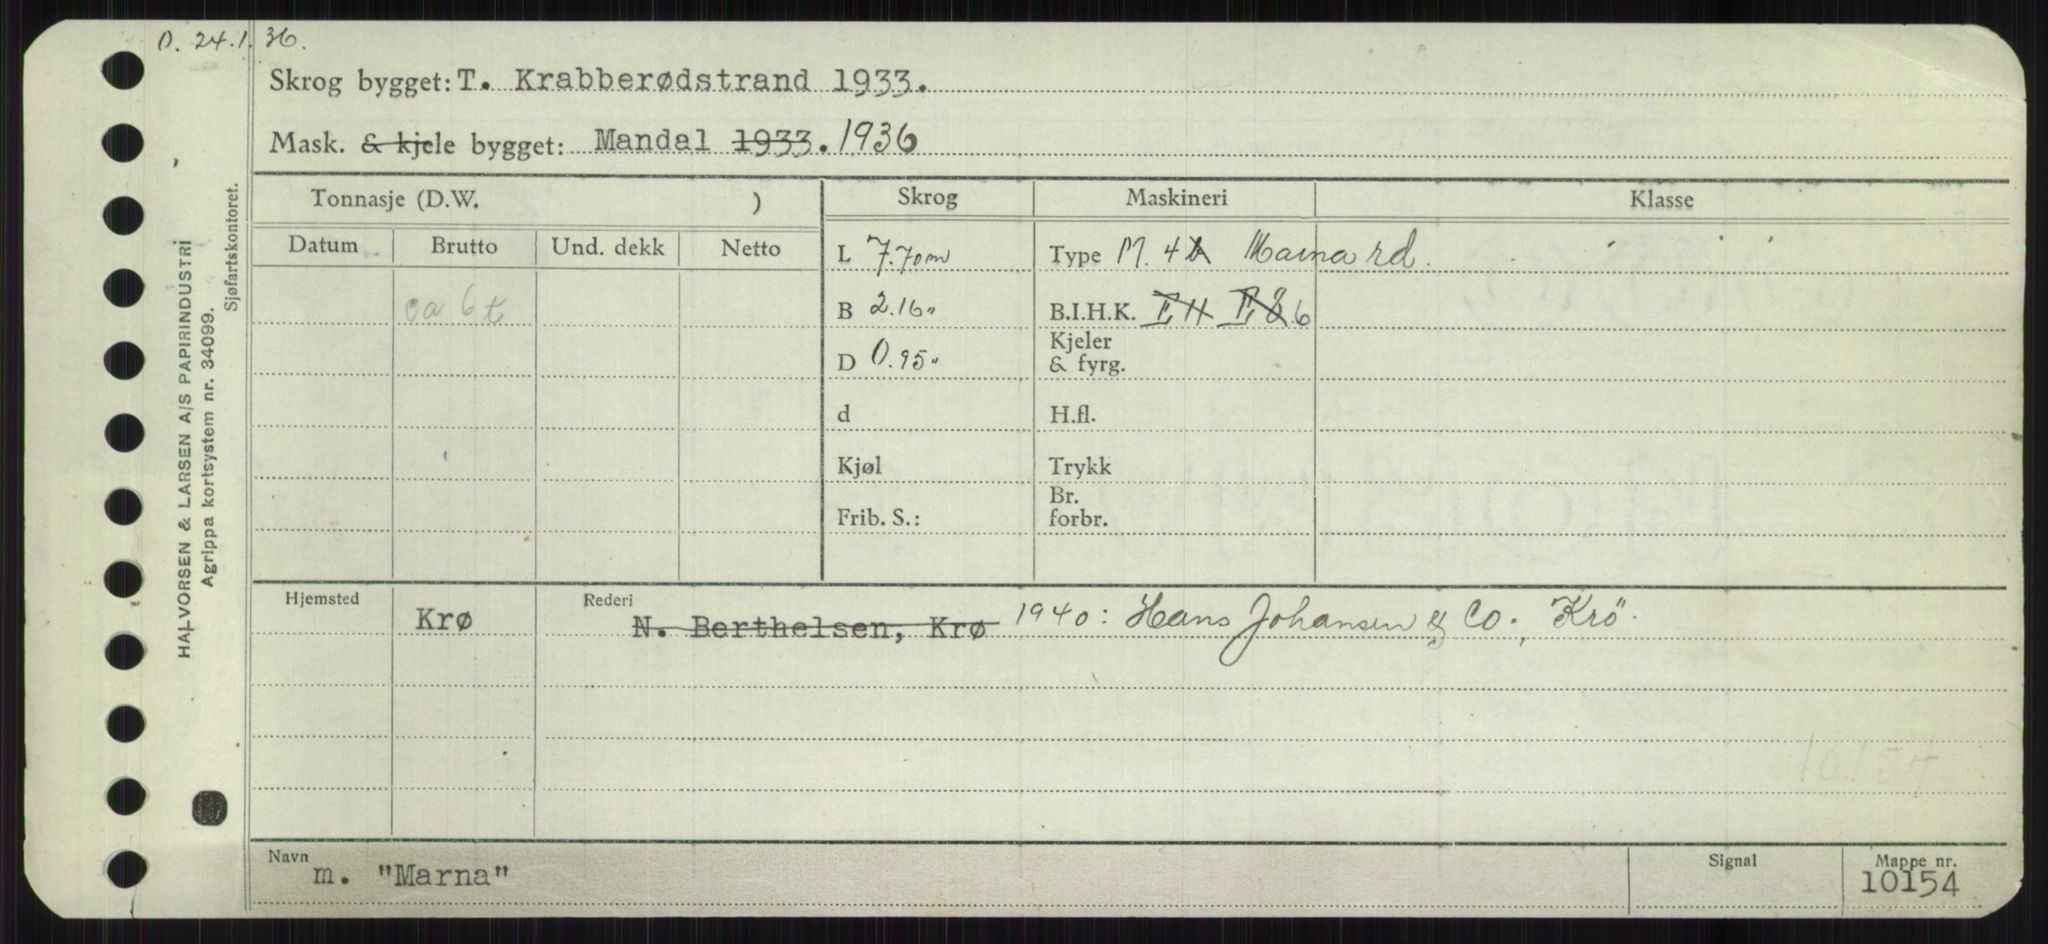 O. 24.1.36.
Skrog bygget: T. Krabberødstrand 1933.
Mask. & kjele bygget: Mandal 1933. 1936
Tonnasje (D.W. )
Skrog
Maskineri
Klasse
Datum
Brutto
Und. dekk
Netto
ca 6 t
L 7.70m
B 2.16"
D 0.95"
d
Kjøl
Frib. S.:
Type M. 4
B.I.H.K. 6
Kjeler
& fyrg.
H.fl.
Trykk
Br.
forbr.
Hjemsted
Krø
Rederi
N. Berthelsen, Krø 1940: Hans Johansen & Co., Krö.
10154
Navn
m. "Marna"
Signal
Mappe nr.
10154
HALVORSEN & LARSEN A/S PAPIRINDUSTRI
Agrippa kortsystem nr. 34099.
Sjøfartskontoret.